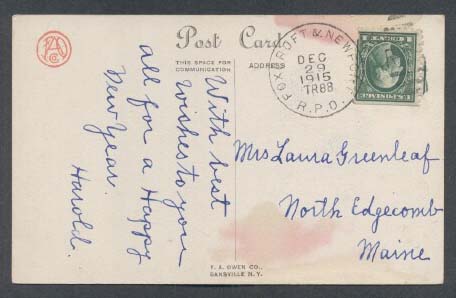 FAC
CO
Post Card
THIS SPACE FOR
COMMUNICATION
ADDRESS
With best
wishes to you
all for a Happy
New Year.
Harold.
FOXCROFT & NEWPORT
DEC
29
1915
TR88
R.P.O.
Mrs Laura Greenleaf
North Edgecomb
Maine
F. A. OWEN CO.,
DANSVILLE N.Y.